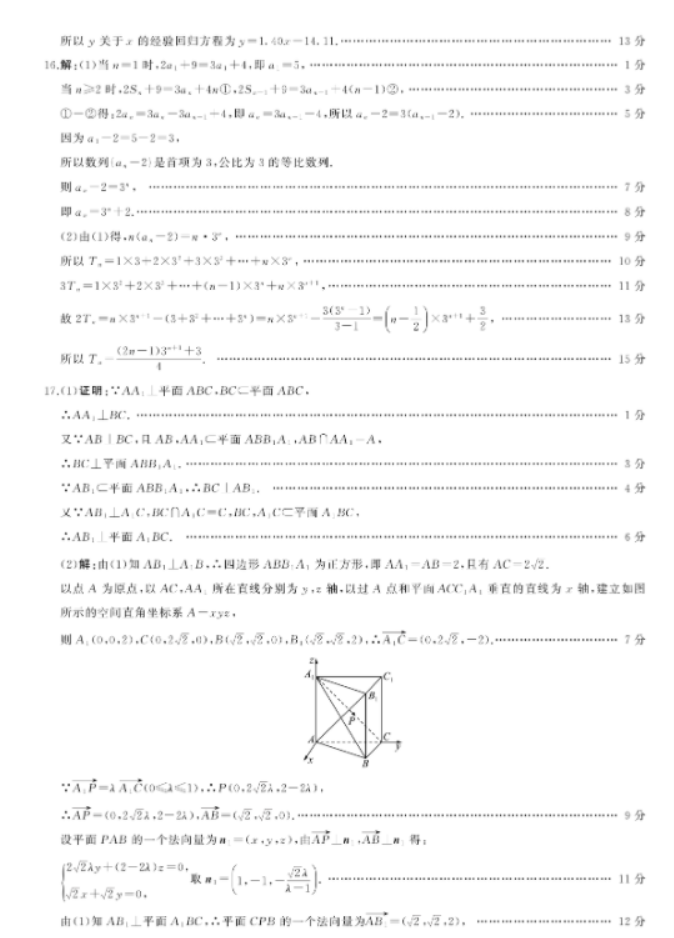 所以 y 关于 x 的经验回归方程为 y=1.40x+14.11.…………13 分
16.解:(1)当 n=1 时,2a₁+9=3a₁+4,即 a₁=5,…………1 分
当 n≥2 时,2Sₙ+9=3aₙ+4n①,2Sₙ₋₁+9=3aₙ₋₁+4(n-1)②,…………3 分
①-②得:2aₙ=3aₙ-3aₙ₋₁+4,即 aₙ=3aₙ₋₁-4,所以 aₙ-2=3(aₙ₋₁-2).…………5 分
因为 a₁-2=5-2=3,
所以数列{aₙ-2}是首项为 3,公比为 3 的等比数列.
则 aₙ-2=3ⁿ,…………7 分
即 aₙ=3ⁿ+2.…………8 分
(2)由(1)得,n(aₙ-2)=n·3ⁿ,…………9 分
所以 Tₙ=1×3+2×3²+3×3³+…+n×3ⁿ,…………10 分
3Tₙ=1×3²+2×3³+…+(n-1)×3ⁿ+n×3ⁿ⁺¹,…………11 分
故 2Tₙ=n×3ⁿ⁺¹-(3+3²+…+3ⁿ)=n×3ⁿ⁺¹-3(3ⁿ-1)/(3-1)=(n-1/2)×3ⁿ⁺¹+3/2,…………13 分
所以 Tₙ=((2n-1)3ⁿ⁺¹+3)/4.…………15 分
17.(1)证明:∵AA₁⊥平面 ABC,BC⊂平面 ABC,
∴AA₁⊥BC.…………1 分
又∵AB⊥BC,且 AB,AA₁⊂平面 ABB₁A₁,AB∩AA₁=A,
∴BC⊥平面 ABB₁A₁.…………3 分
∵AB₁⊂平面 ABB₁A₁,∴BC⊥AB₁.…………4 分
又∵AB₁⊥A₁C,BC∩A₁C=C,BC,A₁C⊂平面 A₁BC,
∴AB₁⊥平面 A₁BC.…………6 分
(2)解:由(1)知 AB₁⊥A₁B,∴四边形 ABB₁A₁ 为正方形,即 AA₁=AB=2,且有 AC=2√2.
以点 A 为原点,以 AC,AA₁ 所在直线分别为 y,z 轴,以过 A 点和平面 ACC₁A₁ 垂直的直线为 x 轴,建立如图
所示的空间直角坐标系 A-xyz,
则 A₁(0,0,2),C(0,2√2,0),B(√2,√2,0),B₁(√2,√2,2),∴A₁C→=(0,2√2,-2).…………7 分
z
A₁ C₁
B₁
P
A C y
x B
∵A₁P→=λA₁C→(0≤λ≤1),∴P(0,2√2λ,2-2λ),
∴AP→=(0,2√2λ,2-2λ),AB→=(√2,√2,0).…………9 分
设平面 PAB 的一个法向量为 n₁=(x,y,z),由AP→⊥n₁,AB→⊥n₁ 得:
{2√2λy+(2-2λ)z=0,
√2x+√2y=0, 取 n₁=(1,-1,-√2λ/(λ-1)).…………11 分
由(1)知 AB₁⊥平面 A₁BC,∴平面 CPB 的一个法向量为AB₁→=(√2,√2,2),…………12 分